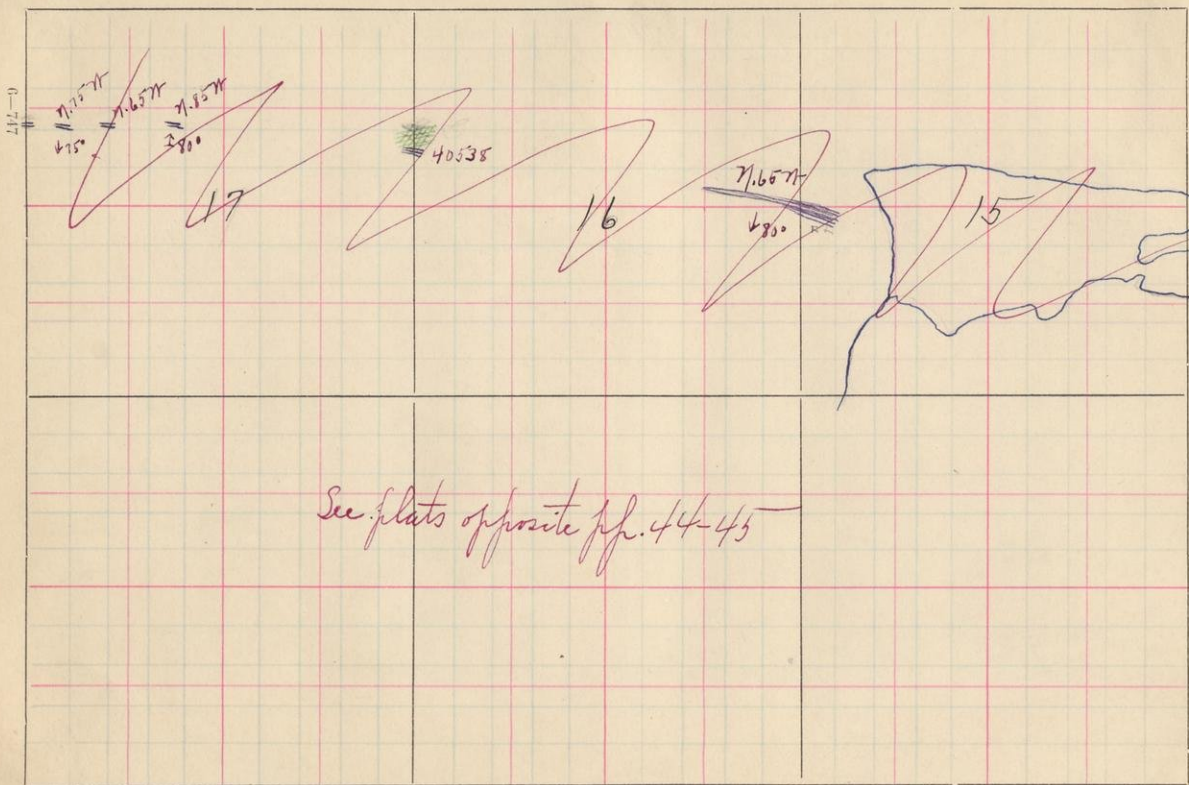 6—747
N.75W N.65W N.85W
↓75° 80°
17
40538
16
N.65W
↓80°
15
See plats opposite pp. 44-45